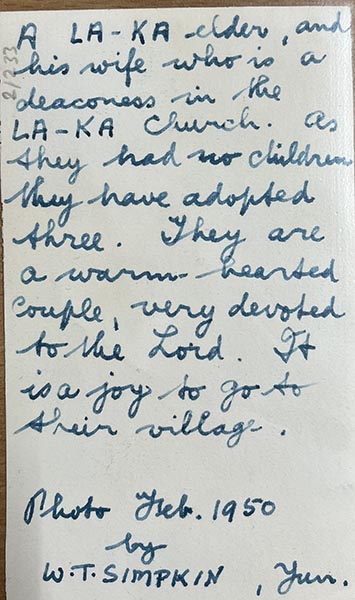 2/233
A LA-KA elder, and
his wife who is a
deaconess in the
LA-KA Church. As
they had no children
they have adopted
three. They are
a warm-hearted
couple, very devoted
to the Lord. It
is a joy to go to
their village.
Photo Feb. 1950
by
W.T. SIMPKIN, Yun.